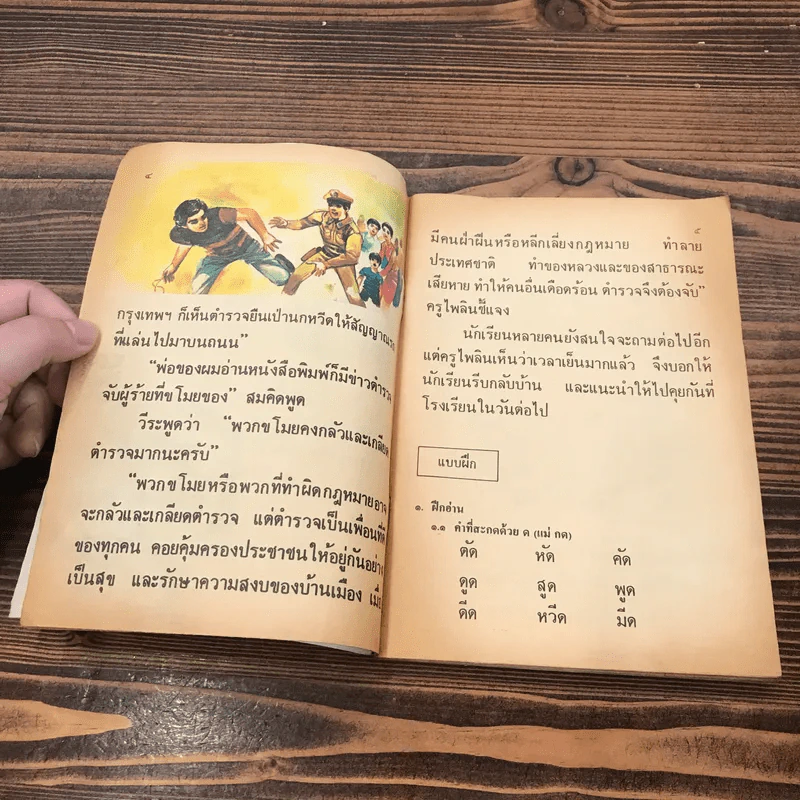 ๔
กรุงเทพฯ ก็เห็นตำรวจยืนเป่านกหวีดให้สัญญาณรถ
ที่แล่นไปมาบนถนน”
“พ่อของผมอ่านหนังสือพิมพ์ก็มีข่าวตำรวจ
จับผู้ร้ายที่ขโมยของ” สมคิดพูด
วีระพูดว่า “พวกขโมยคงกลัวและเกลียด
ตำรวจมากนะครับ”
“พวกขโมยหรือพวกที่ทำผิดกฎหมายอาจ
จะกลัวและเกลียดตำรวจ แต่ตำรวจเป็นเพื่อนที่ดี
ของทุกคน คอยคุ้มครองประชาชนให้อยู่กันอย่าง
เป็นสุข และรักษาความสงบของบ้านเมือง
๕
มีคนฝ่าฝืนหรือหลีกเลี่ยงกฎหมาย ทำลาย
ประเทศชาติ ทำของหลวงและของสาธารณะ
เสียหาย ทำให้คนอื่นเดือดร้อน ตำรวจจึงต้องจับ”
ครูไพลินชี้แจง
นักเรียนหลายคนยังสนใจจะถามต่อไปอีก
แต่ครูไพลินเห็นว่าเวลาเย็นมากแล้ว จึงบอกให้
นักเรียนรีบกลับบ้าน และแนะนำให้ไปคุยกันที่
โรงเรียนในวันต่อไป
แบบฝึก
๑. ฝึกอ่าน
๑.๑ คำที่สะกดด้วย ด (แม่ กด)
ตัด หัด คัด
ดูด สูด พูด
ดีด หวีด มีด